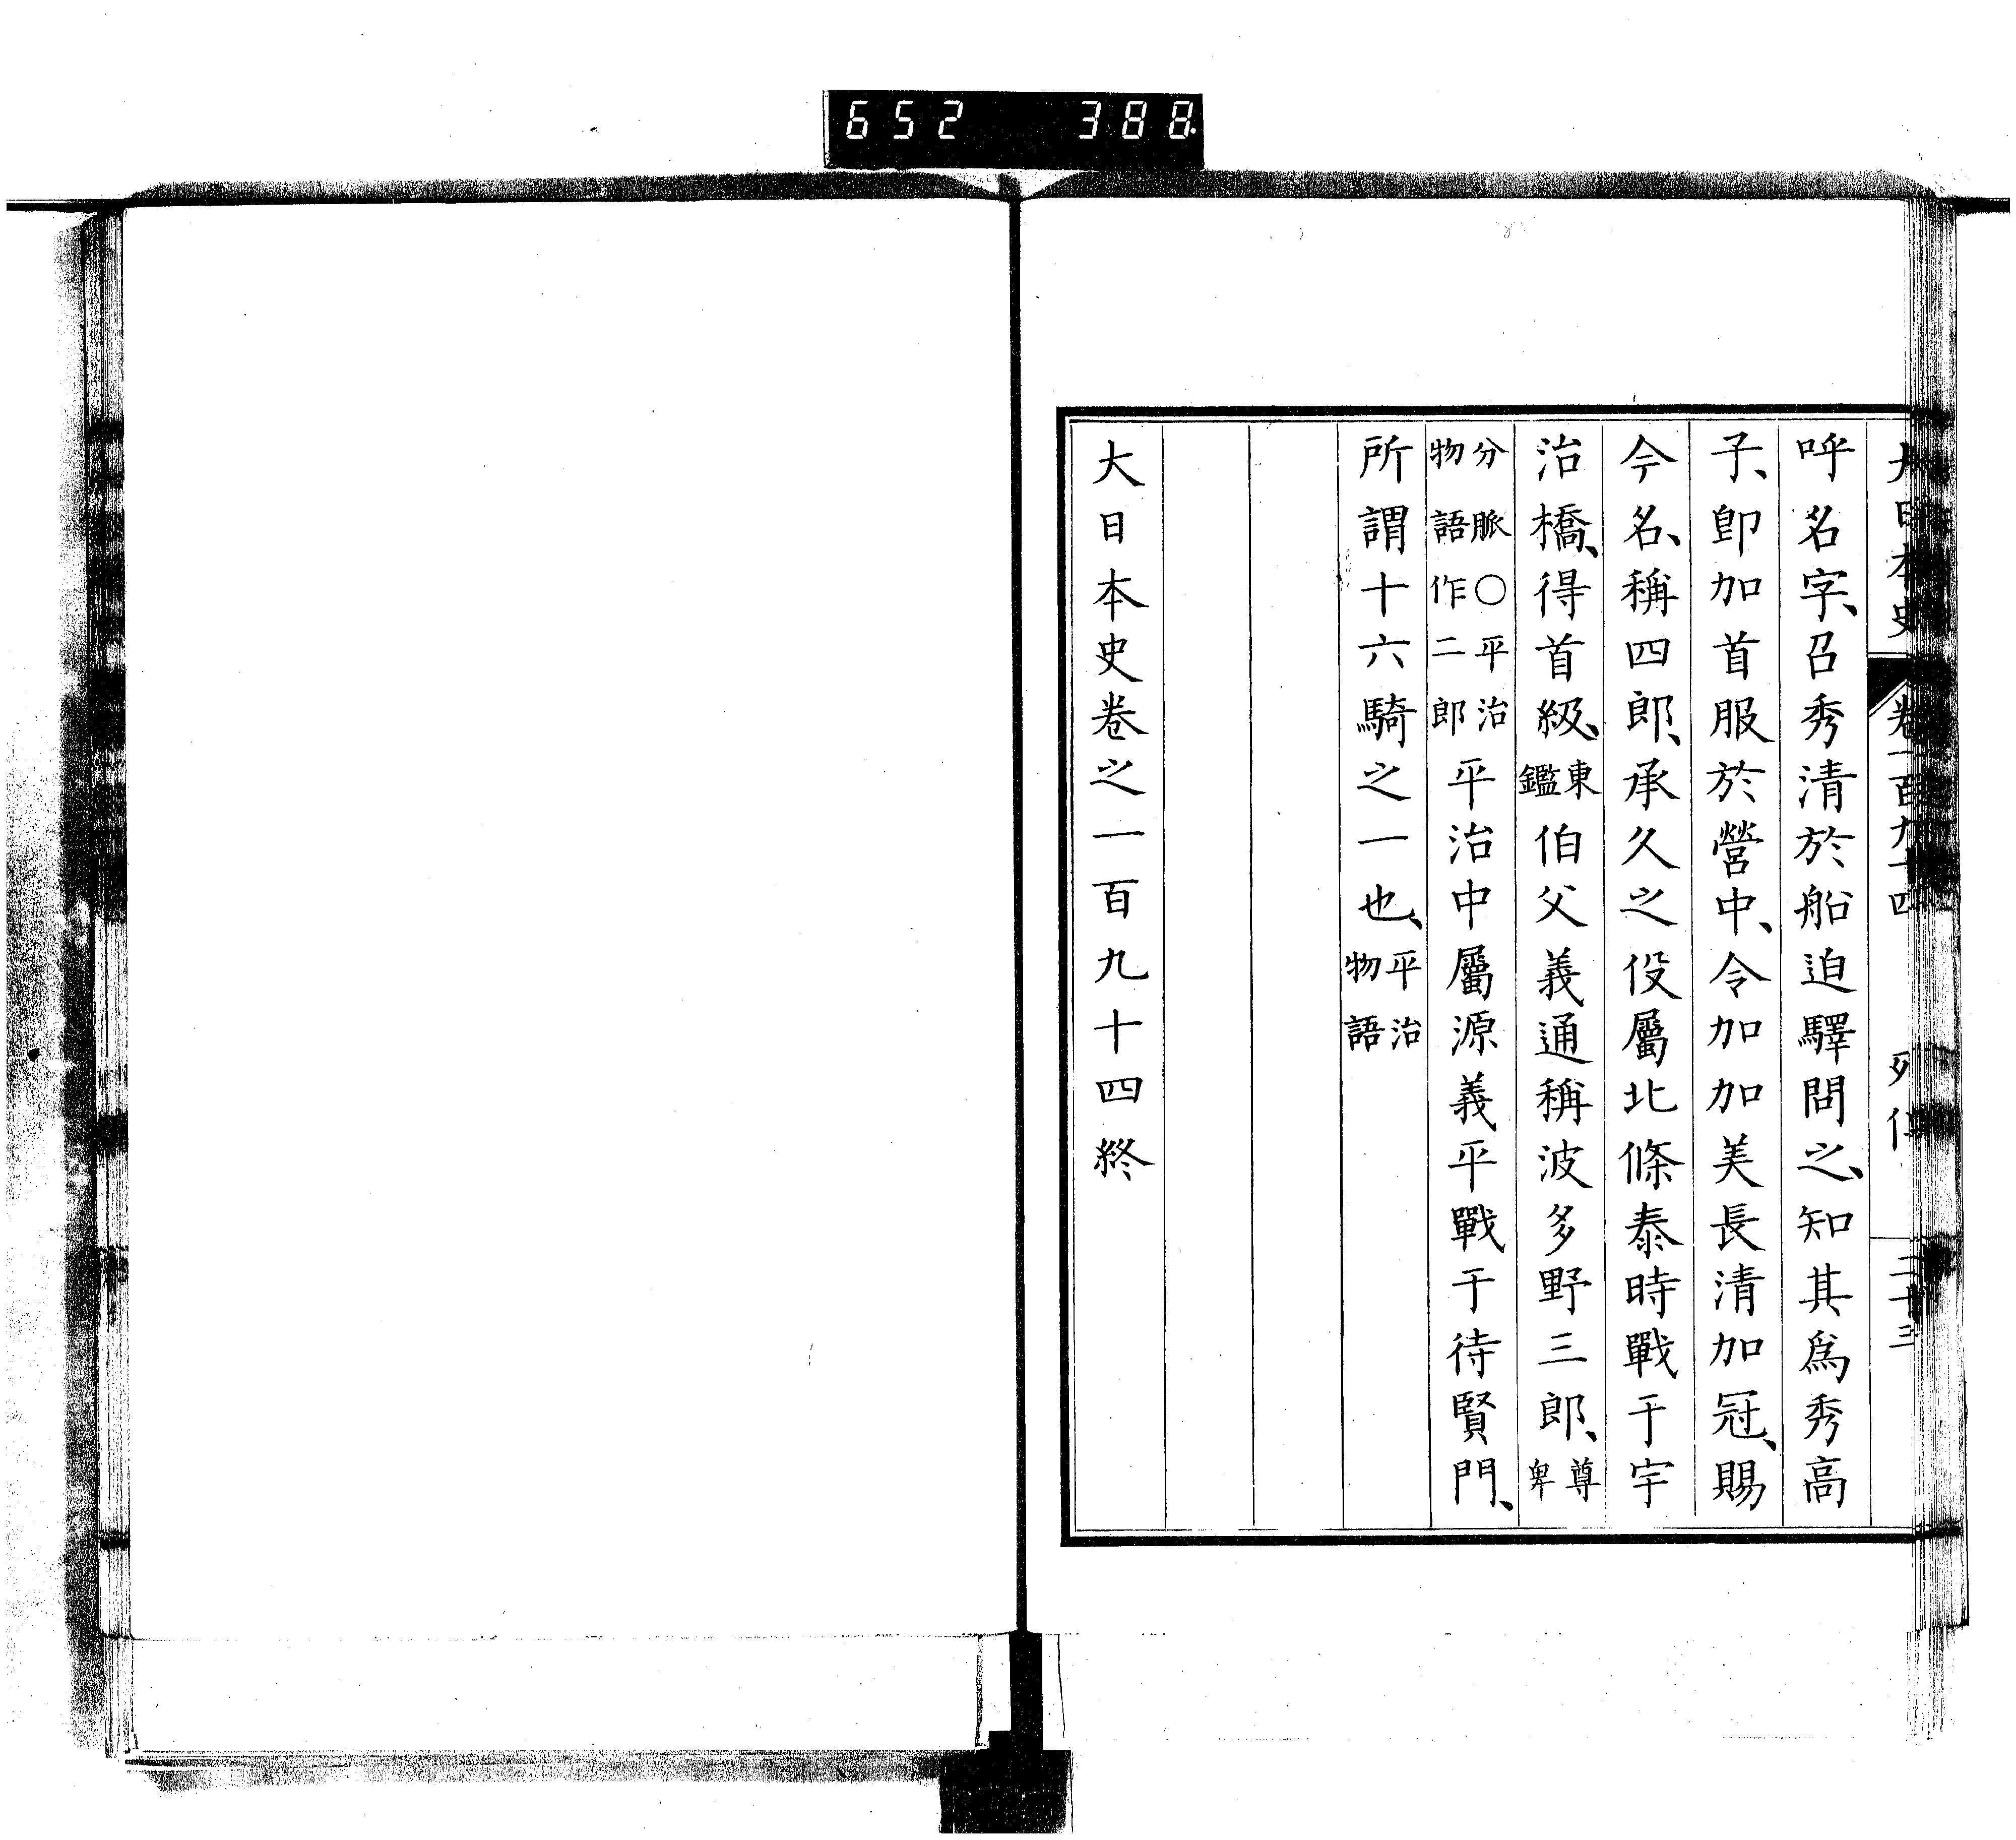 652 388
大日本史 卷一百九十四 列傳 二十三
呼名字、召秀清於船迫驛問之、知其爲秀高
子、卽加首服於營中、令加加美長清加冠、賜
今名、稱四郎、承久之役屬北條泰時戰于宇
治橋、得首級、東鑑伯父義通稱波多野三郎、尊卑
分脈○平治物語作二郎平治中屬源義平戰于待賢門、
所謂十六騎之一也、平治物語
大日本史卷之一百九十四終